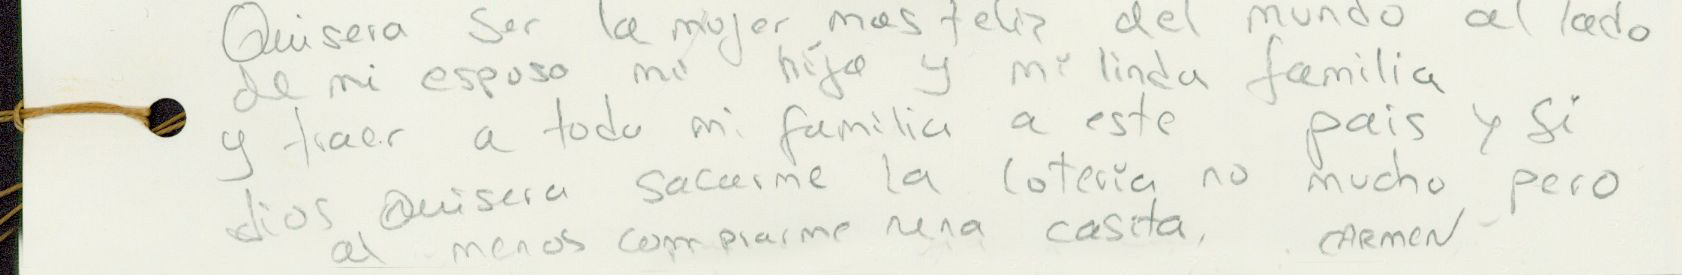 Quisera ser la mujer mas feliz del mundo al lado
de mi esposo mi hija y mi linda familia
y traer a toda mi familia a este pais y si
dios quisera sacarme la loteria no mucho pero
al menos comprarme una casita, CARMEN